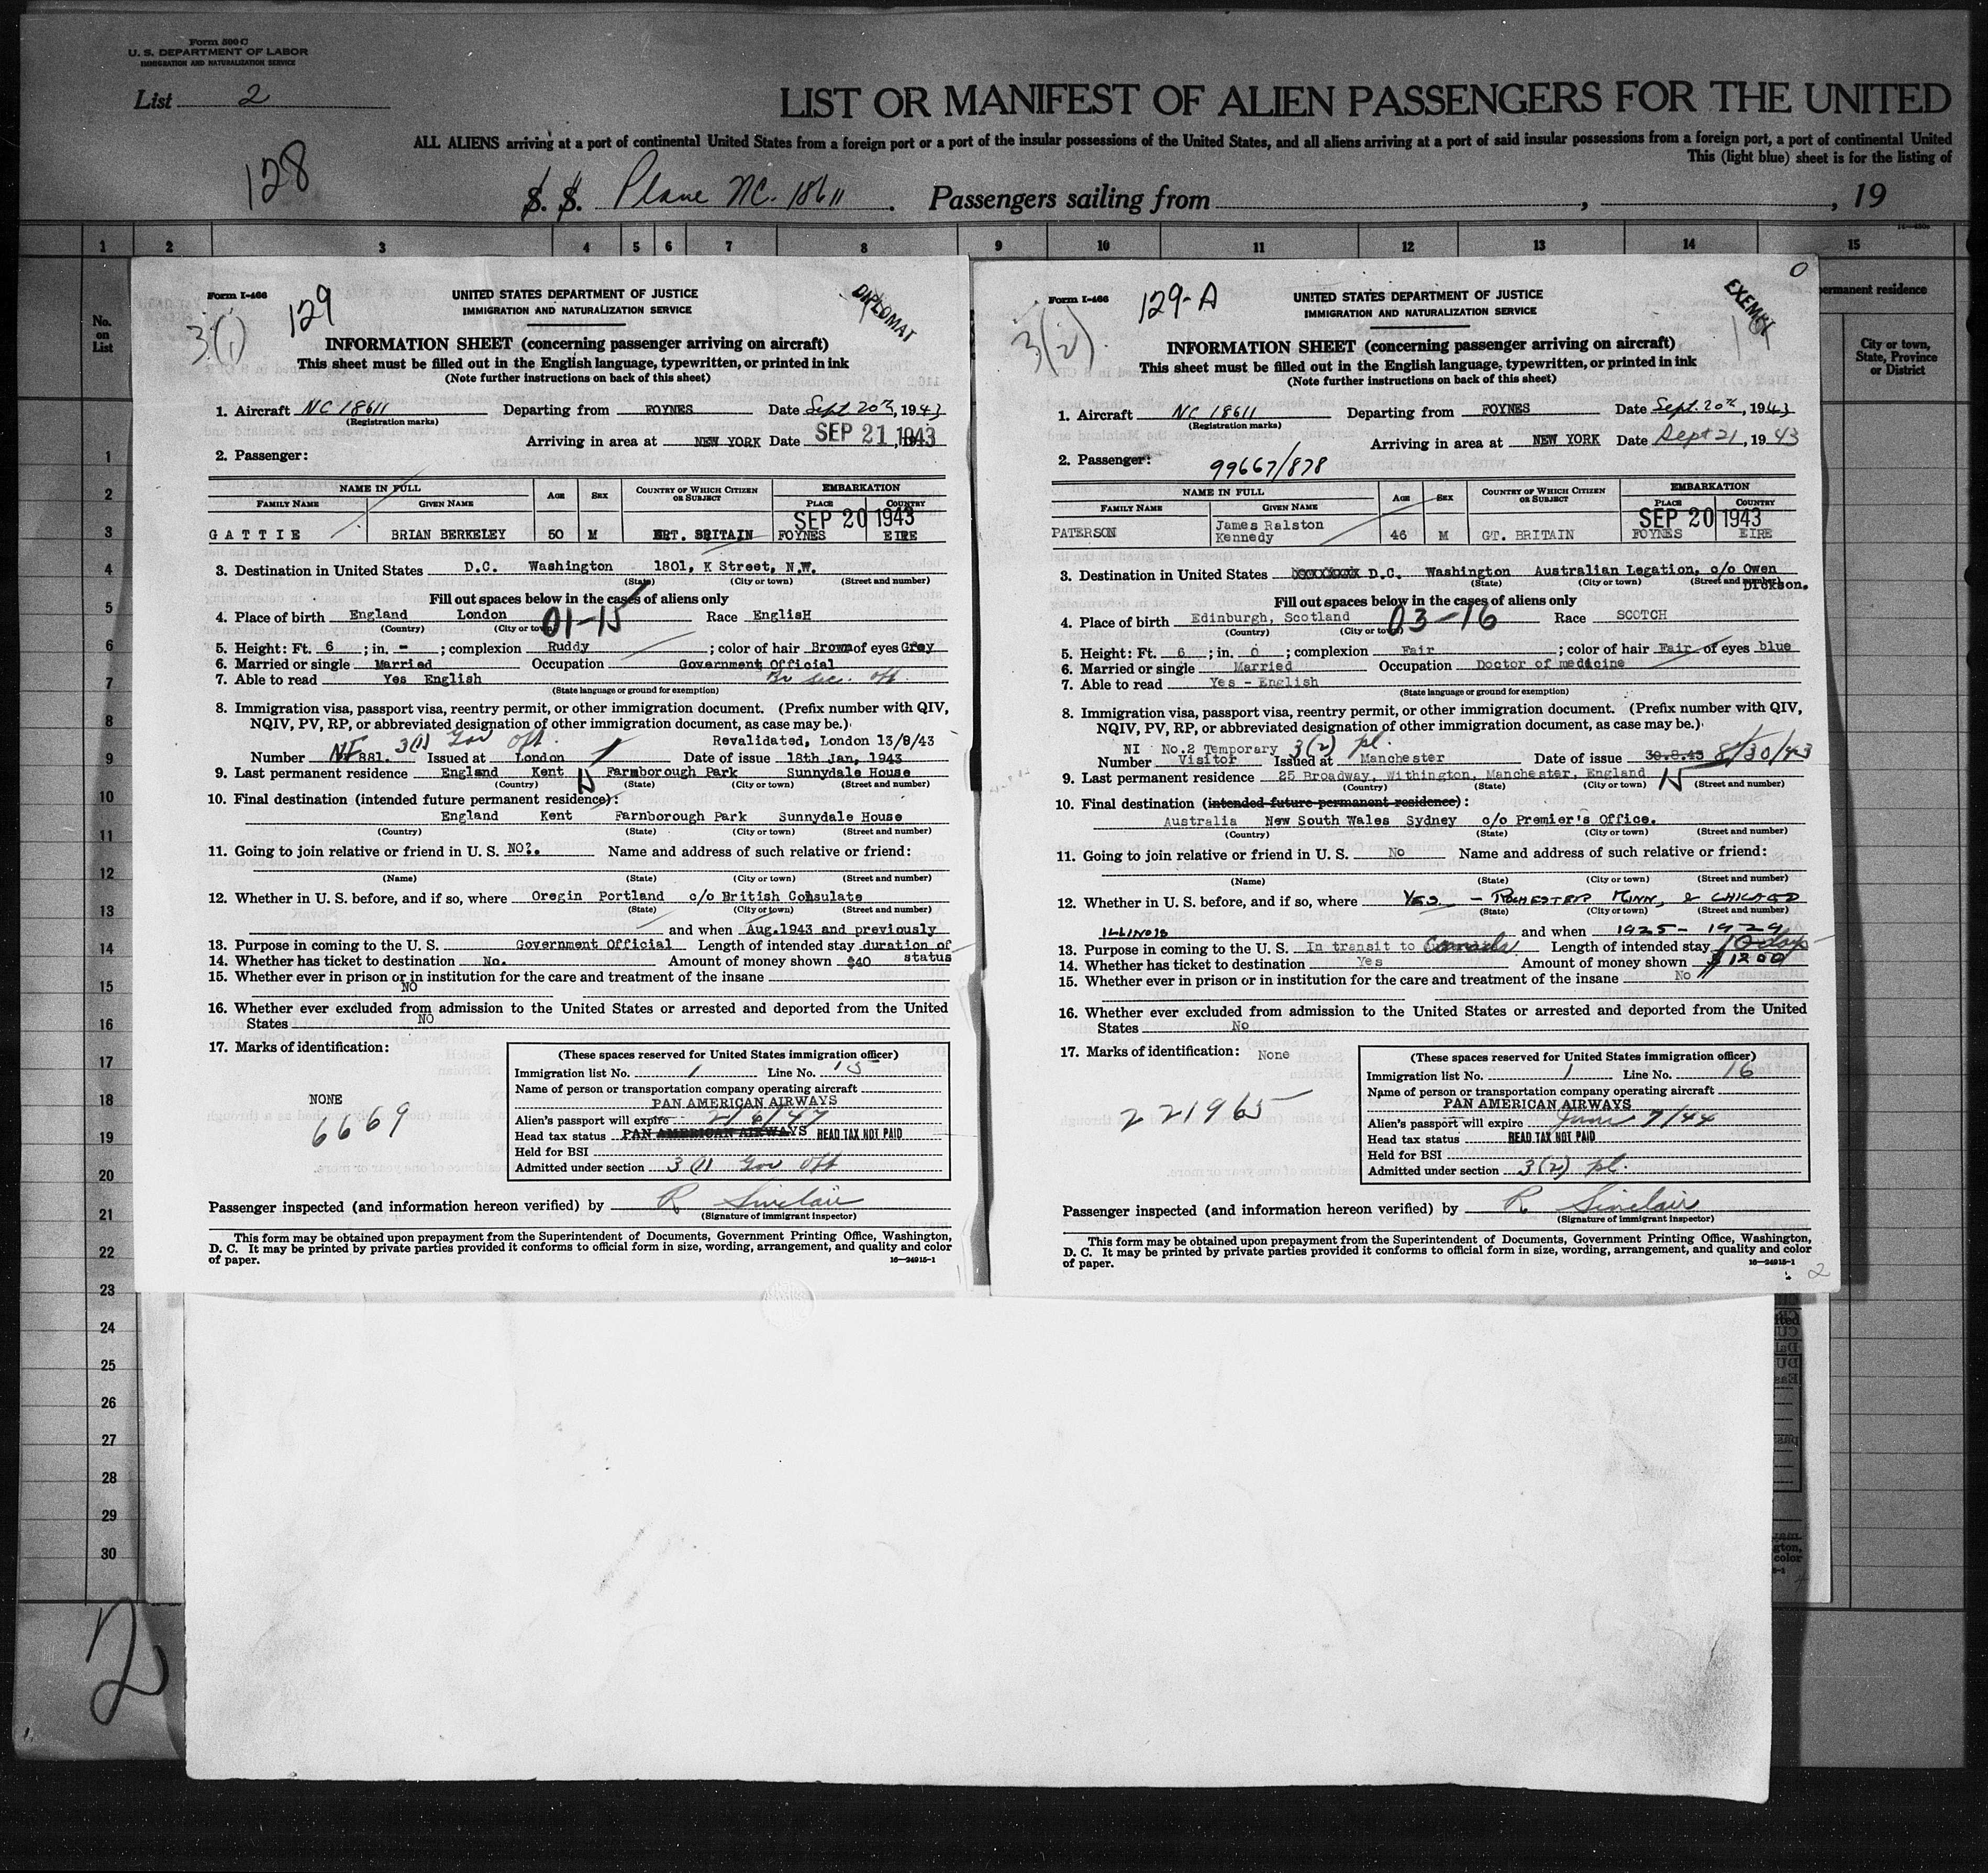 Form 500 C
U. S. DEPARTMENT OF LABOR
IMMIGRATION AND NATURALIZATION SERVICE
List 2
LIST OR MANIFEST OF ALIEN PASSENGERS FOR THE UNITED
ALL ALIENS arriving at a port of continental United States from a foreign port or a port of the insular possessions of the United States, and all aliens arriving at a port of said insular possessions from a foreign port, a port of continental United
This (light blue) sheet is for the listing of
128
S. S. Plane NC. 18611. Passengers sailing from , , 19
1 2 3 4 5 6 7 8 9 10 11 12 13 14 15
No. on List
ermanent residence
City or town, State, Province or District
1
2
3
4
5
6
7
8
9
10
11
12
13
14
15
16
17
18
19
20
21
22
23
24
25
26
27
28
29
30
2
Form I-466
129
3(1)
DIPLOMAT
UNITED STATES DEPARTMENT OF JUSTICE
IMMIGRATION AND NATURALIZATION SERVICE
INFORMATION SHEET (concerning passenger arriving on aircraft)
This sheet must be filled out in the English language, typewritten, or printed in ink
(Note further instructions on back of this sheet)
1. Aircraft NC 18611 Departing from FOYNES Date Sept. 20th, 1943
(Registration marks)
Arriving in area at NEW YORK Date SEP 21 1943
2. Passenger:
NAME IN FULL AGE SEX COUNTRY OF WHICH CITIZEN OR SUBJECT EMBARKATION
FAMILY NAME GIVEN NAME PLACE COUNTRY
SEP 20 1943
GATTIE BRIAN BERKELEY 50 M GRT. BRITAIN FOYNES EIRE
3. Destination in United States D.C. Washington 1801, K Street, N.W.
(State) (City or town) (Street and number)
Fill out spaces below in the cases of aliens only
4. Place of birth England London 01-15 Race EnglisH
(Country) (City or town)
5. Height: Ft. 6 ; in. - ; complexion Ruddy ; color of hair Brown of eyes Grey
6. Married or single Married Occupation Government Official
7. Able to read Yes English Br sec. off.
(State language or ground for exemption)
8. Immigration visa, passport visa, reentry permit, or other immigration document. (Prefix number with QIV,
NQIV, PV, RP, or abbreviated designation of other immigration document, as case may be.)
3(1) Gov off. Revalidated, London 13/8/43
Number NF 881. Issued at London Date of issue 18th Jan, 1943
9. Last permanent residence England Kent Farmborough Park Sunnydale House
(Country) (State) (City or town) (Street and number)
10. Final destination (intended future permanent residence):
England Kent Farnborough Park Sunnydale House
(Country) (State) (City or town) (Street and number)
11. Going to join relative or friend in U. S. NO?. Name and address of such relative or friend:
(Name) (State) (City or town) (Street and number)
12. Whether in U. S. before, and if so, where Oregin Portland c/o British Consulate
(State) (City or town) (Street and number)
and when Aug.1943 and previously
13. Purpose in coming to the U. S. Government Official Length of intended stay duration of status
14. Whether has ticket to destination No. Amount of money shown $40
15. Whether ever in prison or in institution for the care and treatment of the insane
NO
16. Whether ever excluded from admission to the United States or arrested and deported from the United
States NO
17. Marks of identification:
NONE
6669
(These spaces reserved for United States immigration officer)
Immigration list No. 1 Line No. 15
Name of person or transportation company operating aircraft
PAN AMERICAN AIRWAYS
Alien's passport will expire 2/6/47
Head tax status PAN AMERICAN AIRWAYS HEAD TAX NOT PAID
Held for BSI
Admitted under section 3 (1) Gov off
Passenger inspected (and information hereon verified) by R Sinclair
(Signature of immigrant inspector)
This form may be obtained upon prepayment from the Superintendent of Documents, Government Printing Office, Washington,
D. C. It may be printed by private parties provided it conforms to official form in size, wording, arrangement, and quality and color
of paper. 16—24915-1
Form I-466
129-A
3(2)
0
EXEMPT
UNITED STATES DEPARTMENT OF JUSTICE
IMMIGRATION AND NATURALIZATION SERVICE
INFORMATION SHEET (concerning passenger arriving on aircraft)
This sheet must be filled out in the English language, typewritten, or printed in ink
(Note further instructions on back of this sheet)
1. Aircraft NC 18611 Departing from FOYNES Date Sept. 20th, 1943
(Registration marks)
Arriving in area at NEW YORK Date Sept 21, 1943
2. Passenger: 99667/878
NAME IN FULL AGE SEX COUNTRY OF WHICH CITIZEN OR SUBJECT EMBARKATION
FAMILY NAME GIVEN NAME PLACE COUNTRY
SEP 20 1943
PATERSON James Ralston Kennedy 46 M GT. BRITAIN FOYNES EIRE
3. Destination in United States D.C. Washington Australian Legation, c/o Owen Dickson.
(State) (City or town) (Street and number)
Fill out spaces below in the cases of aliens only
4. Place of birth Edinburgh, Scotland 03-16 Race SCOTCH
(Country) (City or town)
5. Height: Ft. 6 ; in. 0 ; complexion Fair ; color of hair Fair of eyes blue
6. Married or single Married Occupation Doctor of medicine
7. Able to read Yes - English
(State language or ground for exemption)
8. Immigration visa, passport visa, reentry permit, or other immigration document. (Prefix number with QIV,
NQIV, PV, RP, or abbreviated designation of other immigration document, as case may be.)
NI No.2 Temporary 3(2) pl.
Number Visitor Issued at Manchester Date of issue 30.8.43 8/30/43
9. Last permanent residence 25 Broadway, Withington, Manchester, England
(Country) (State) (City or town) (Street and number)
10. Final destination (intended future permanent residence):
Australia New South Wales Sydney c/o Premier's Office.
(Country) (State) (City or town) (Street and number)
11. Going to join relative or friend in U. S. No Name and address of such relative or friend:
(Name) (State) (City or town) (Street and number)
12. Whether in U. S. before, and if so, where YES - ROCHESTER MINN, & CHICAGO
(State) (City or town) (Street and number)
ILLINOIS and when 1925 - 1929
13. Purpose in coming to the U. S. In transit to Canada Length of intended stay 10 days
14. Whether has ticket to destination Yes Amount of money shown $1200
15. Whether ever in prison or in institution for the care and treatment of the insane No
16. Whether ever excluded from admission to the United States or arrested and deported from the United
States No
17. Marks of identification: None
221965
(These spaces reserved for United States immigration officer)
Immigration list No. 1 Line No. 16
Name of person or transportation company operating aircraft
PAN AMERICAN AIRWAYS
Alien's passport will expire June 7/44
Head tax status HEAD TAX NOT PAID
Held for BSI
Admitted under section 3(2) pl.
Passenger inspected (and information hereon verified) by R Sinclair
(Signature of immigrant inspector)
This form may be obtained upon prepayment from the Superintendent of Documents, Government Printing Office, Washington,
D. C. It may be printed by private parties provided it conforms to official form in size, wording, arrangement, and quality and color
of paper. 16—24915-1
2